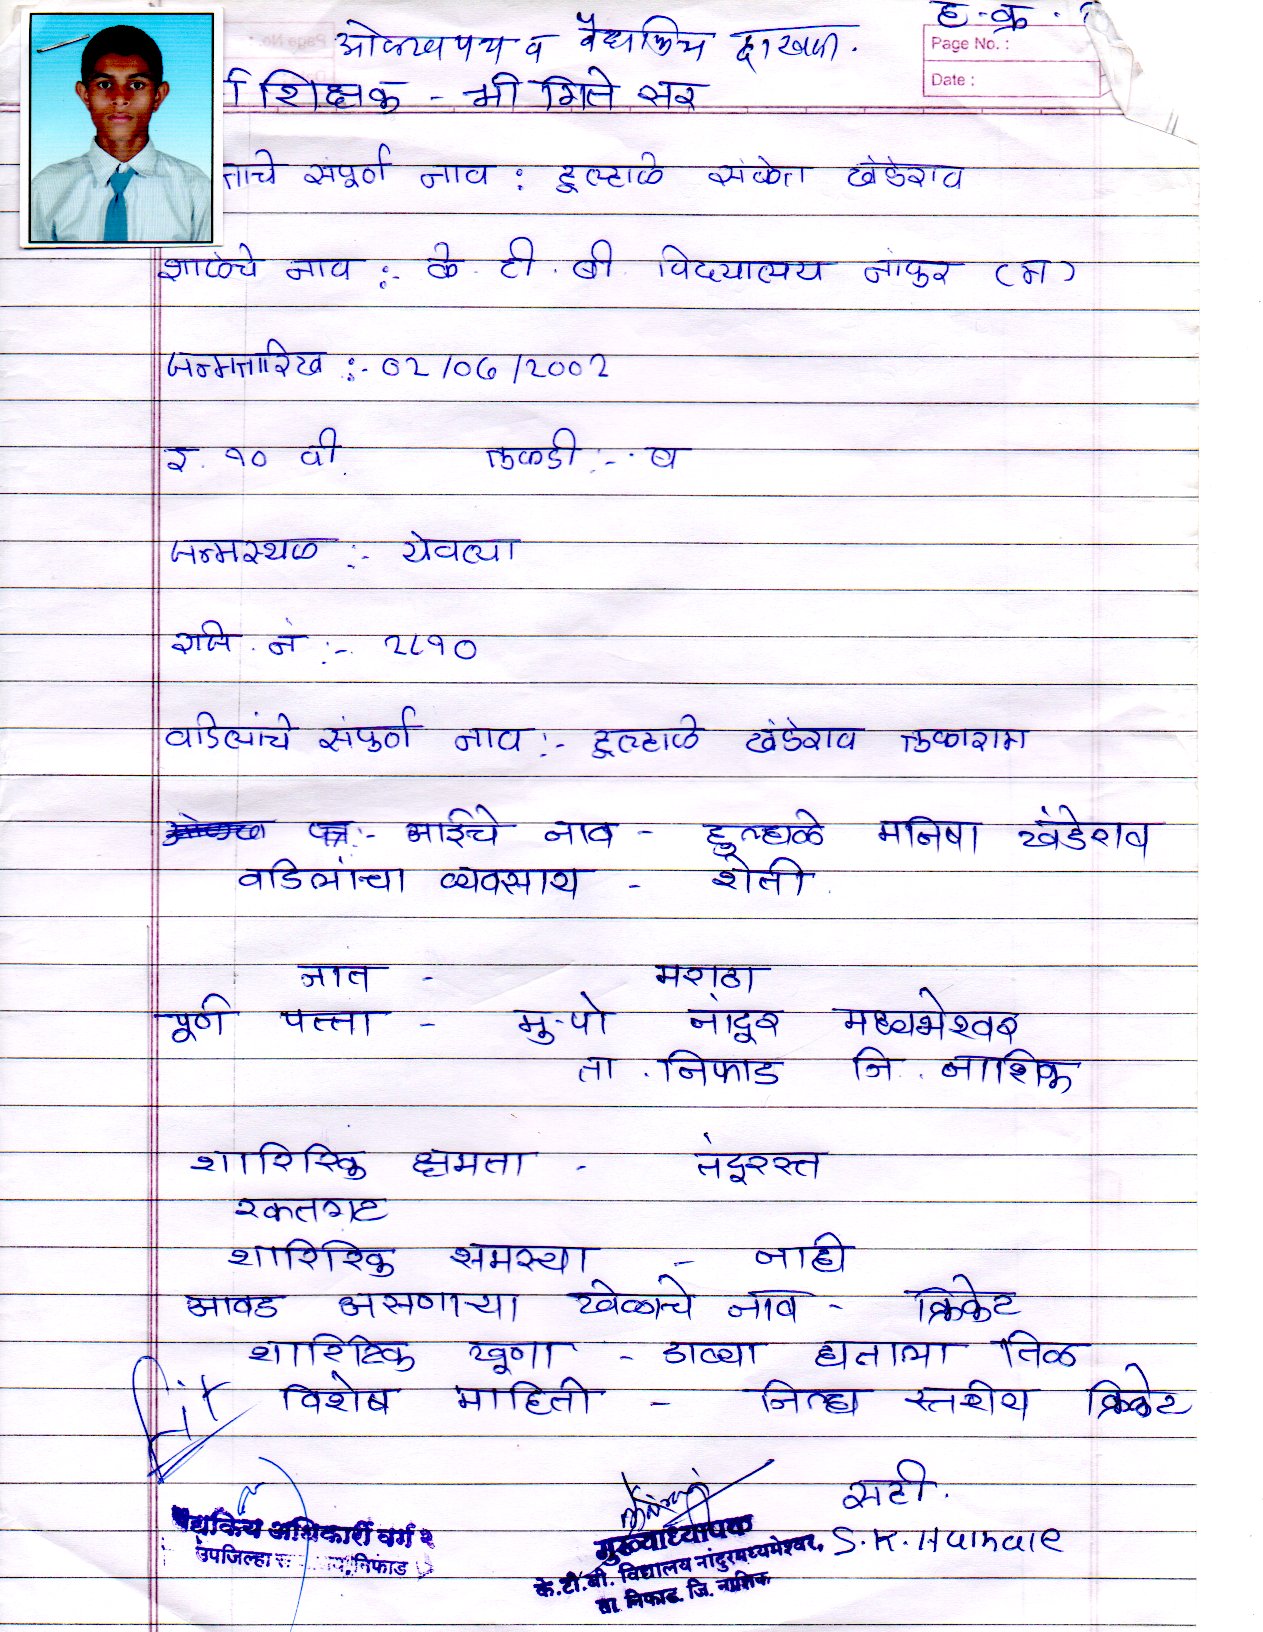 ह.क्र.
ओळखपत्र व वैद्यकिय दाखला.
Page No. :
Date :
शिक्षक - श्री गिते सर
संपूर्ण नाव : हुल्हाळे संकेत खंडेराव
शाळेचे नाव :- के. टी. बी. विद्यालय नांदुर (म)
जन्मतारिख :- 02/06/2002
इ. १० वी. तुकडी :- ब
जन्मस्थळ :- येवला
रजि. नं :- २८१०
वडिलांचे संपुर्ण नाव :- हुल्हाळे खंडेराव तुकाराम
आईचे नाव - हुल्हाळे मनिषा खंडेराव
वडिलांचा व्यवसाय - शेती.
जात - मराठा
पूर्ण पत्ता - मु.पो नांदूर मध्यमेश्वर
ता. निफाड जि. नाशिक
शारिरिक क्षमता - तंदूरस्त
रक्तगट
शारिरिक समस्या - नाही
आवड असणाऱ्या खेळाचे नाव - क्रिकेट
शारिरिक खूणा - डाव्या हाताला तिळ
विशेष माहिती - जिल्हा स्तरीय क्रिकेट
सही.
S.K.Hulhale
वैद्यकिय अधिकारी वर्ग २
उपजिल्हा निफाड
मुख्याध्यापक
के.टी.बी. विद्यालय नांदुरमध्यमेश्वर,
ता. निफाड. जि. नाशिक